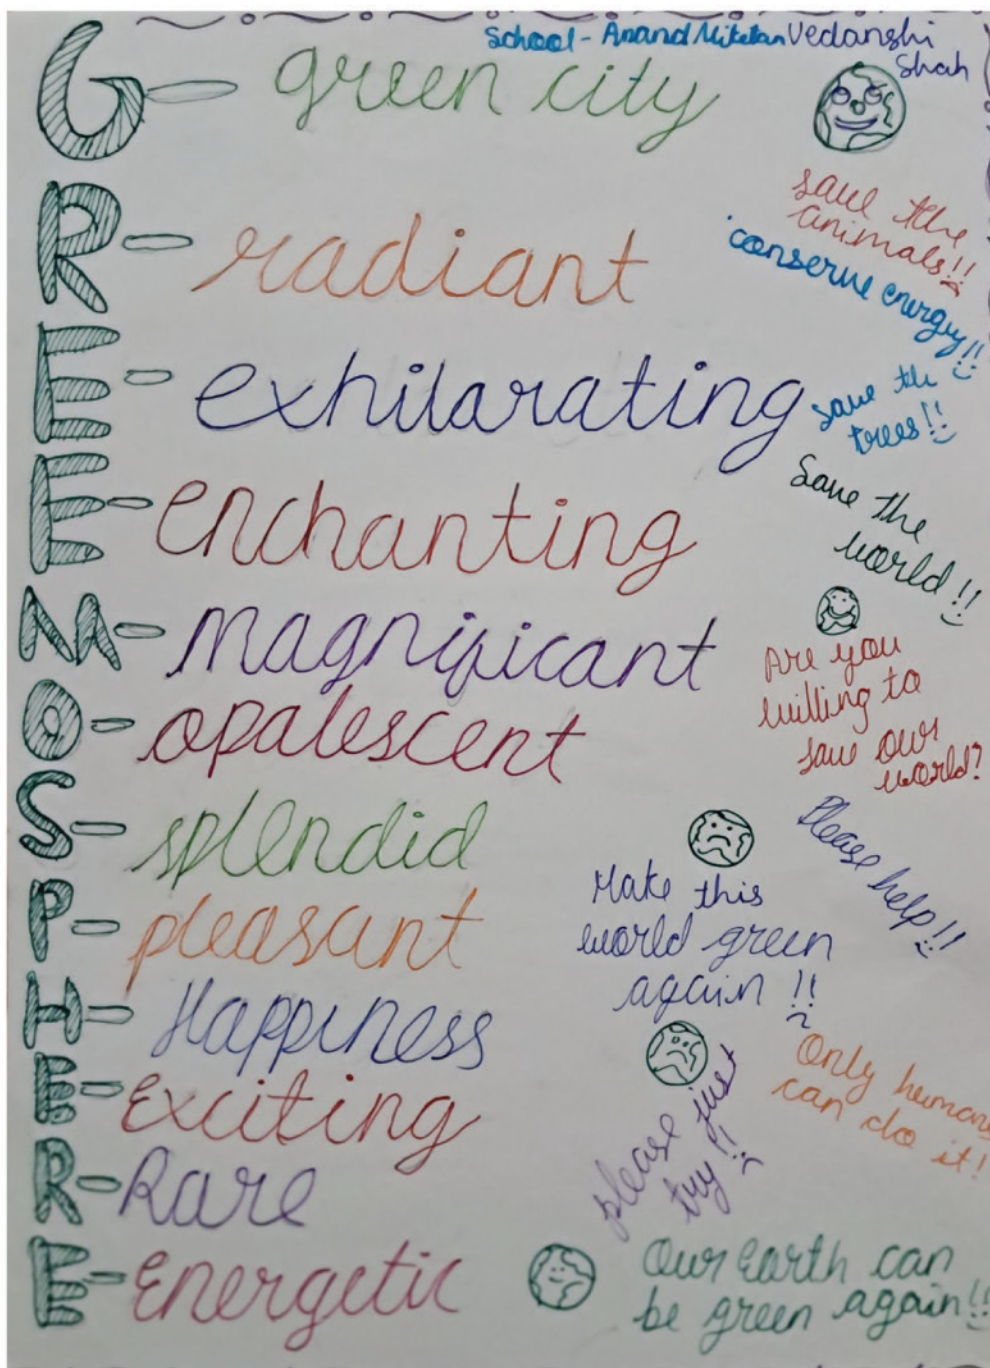 School - Anand Niketan Vedanshi
Shah
G - green city
R - radiant
E - exhilarating
E - enchanting
M - magnificant
O - opalescent
S - splendid
P - pleasant
H - Happiness
E - Exciting
R - Rare
E - Energetic
save the
animals!!
conserve energy!!
save the
trees!!
Save the
world!!
Are you
willing to
save our
world?
Please help!!
Make this
world green
again!!
Only humans
can do it!
please just
try!!
Our Earth can
be green again!!